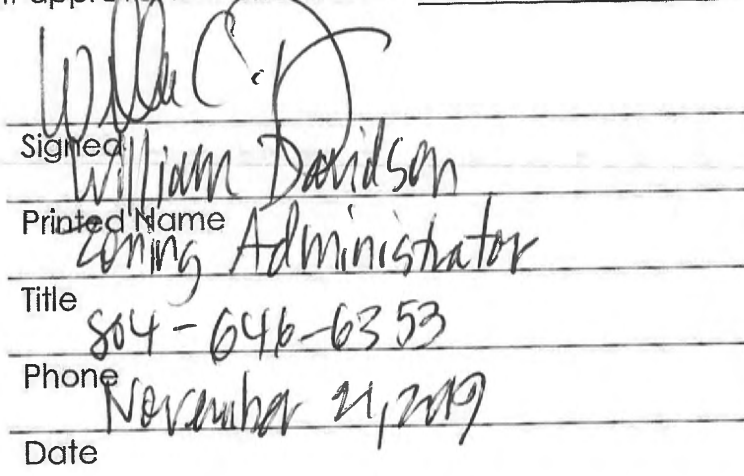 Signed
William Davidson
Printed Name
Zoning Administrator
Title
804-646-6353
Phone
November 21, 2019
Date